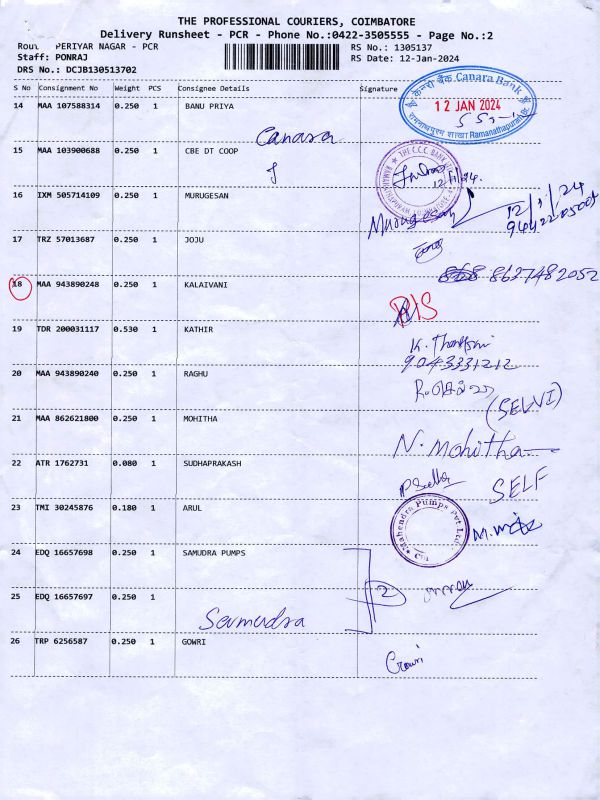 THE PROFESSIONAL COURIERS, COIMBATORE
Delivery Runsheet - PCR - Phone No.:0422-3505555 - Page No.:2
PERIYAR NAGAR - PCR RS No.: 1305137
Staff: PONRAJ RS Date: 12-Jan-2024
DRS No.: DCJB130513702
S No Consignment No Weight PCS Consignee Details Signature
केनरा बैंक Canara Bank
12 JAN 2024
रामनाथपुरम शाखा Ramanathapuram Br.
14 MAA 107588314 0.250 1 BANU PRIYA
Canara
15 MAA 103900688 0.250 1 CBE DT COOP
THE C.C.C. BANK
RAMANATHAPURAM
12/1/24.
16 IXM 505714109 0.250 1 MURUGESAN
Murugesan 12/1/24
17 TRZ 57013687 0.250 1 JOJU
8637482052
18 MAA 943890248 0.250 1 KALAIVANI
19 TDR 200031117 0.530 1 KATHIR
9043331212
20 MAA 943890240 0.250 1 RAGHU
(SELVI)
21 MAA 862621800 0.250 1 MOHITHA
N. Mohitha
22 ATR 1762731 0.080 1 SUDHAPRAKASH
SELF
23 TMI 30245876 0.180 1 ARUL
Mahendra Pumps Pvt Ltd.
24 EDQ 16657698 0.250 1 SAMUDRA PUMPS
2
25 EDQ 16657697 0.250 1
Samudra
26 TRP 6256587 0.250 1 GOWRI
Gowri